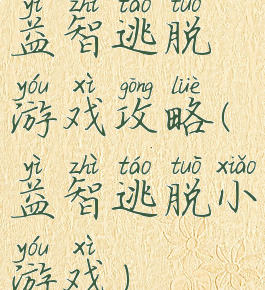 yì zhì táo tuō
益智逃脱
yóu xì gōng lüè
游戏攻略(
yì zhì táo tuō xiǎo
益智逃脱小
yóu xì
游戏)